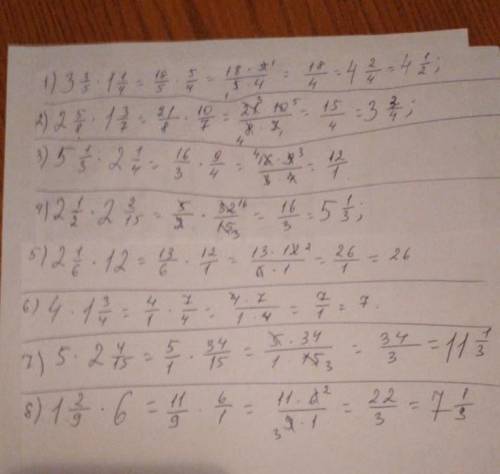 1) 3 3/5 · 1 1/4 = 18/5 · 5/4 = 18 · 5¹/5 · 4 = 18/4 = 4 2/4 = 4 1/2;
2) 2 5/8 · 1 3/7 = 21/8 · 10/7 = 21³ · 10⁵/₄8 · 7₁ = 15/4 = 3 3/4;
3) 5 1/3 · 2 1/4 = 16/3 · 9/4 = ⁴16 · 9³/3 · 4 = 12/1
4) 2 1/2 · 2 2/15 = 5/2 · 32¹⁶/15₃ = 16/3 = 5 1/3;
5) 2 1/6 · 12 = 13/6 · 12/1 = 13 · 12²/6 · 1 = 26/1 = 26
6) 4 · 1 3/4 = 4/1 · 7/4 = 4 · 7/1 · 4 = 7/1 = 7.
7) 5 · 2 4/15 = 5/1 · 34/15 = 5 · 34/1 · 15₃ = 34/3 = 11 1/3
8) 1 2/9 · 6 = 11/9 · 6/1 = 11 · 6²/₃9 · 1 = 22/3 = 7 1/3